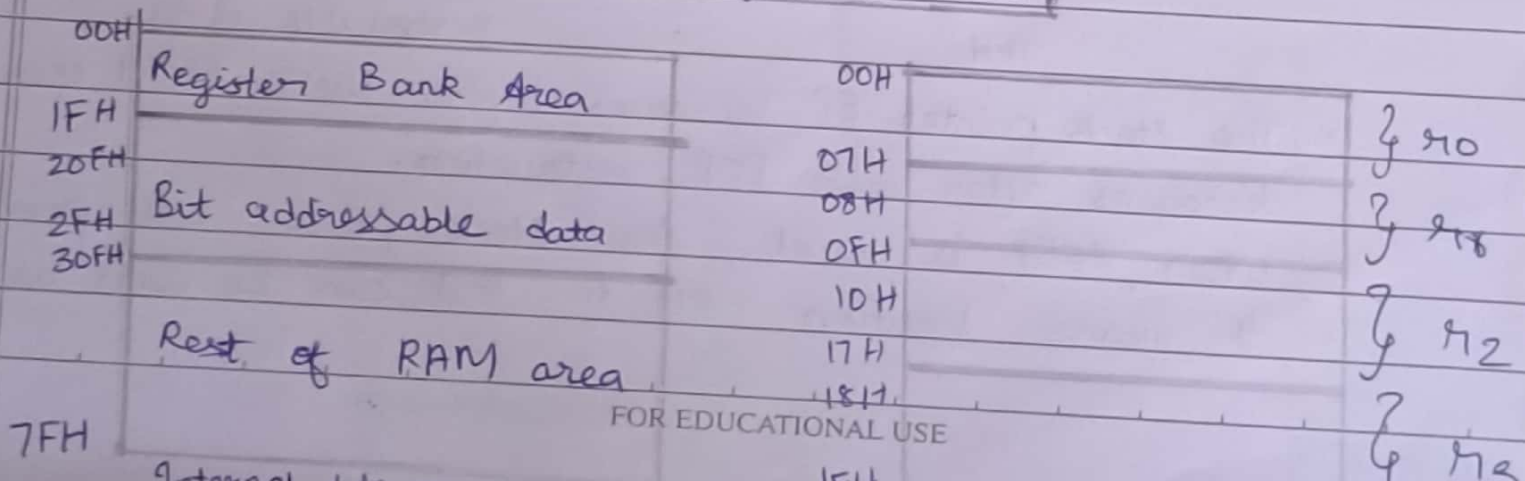 00H
Register Bank Area
1FH
20FH
Bit addressable data
2FH
30FH
Rest of RAM area
7FH
00H
07H
08H
0FH
10H
17H
18H
r0
r2
FOR EDUCATIONAL USE